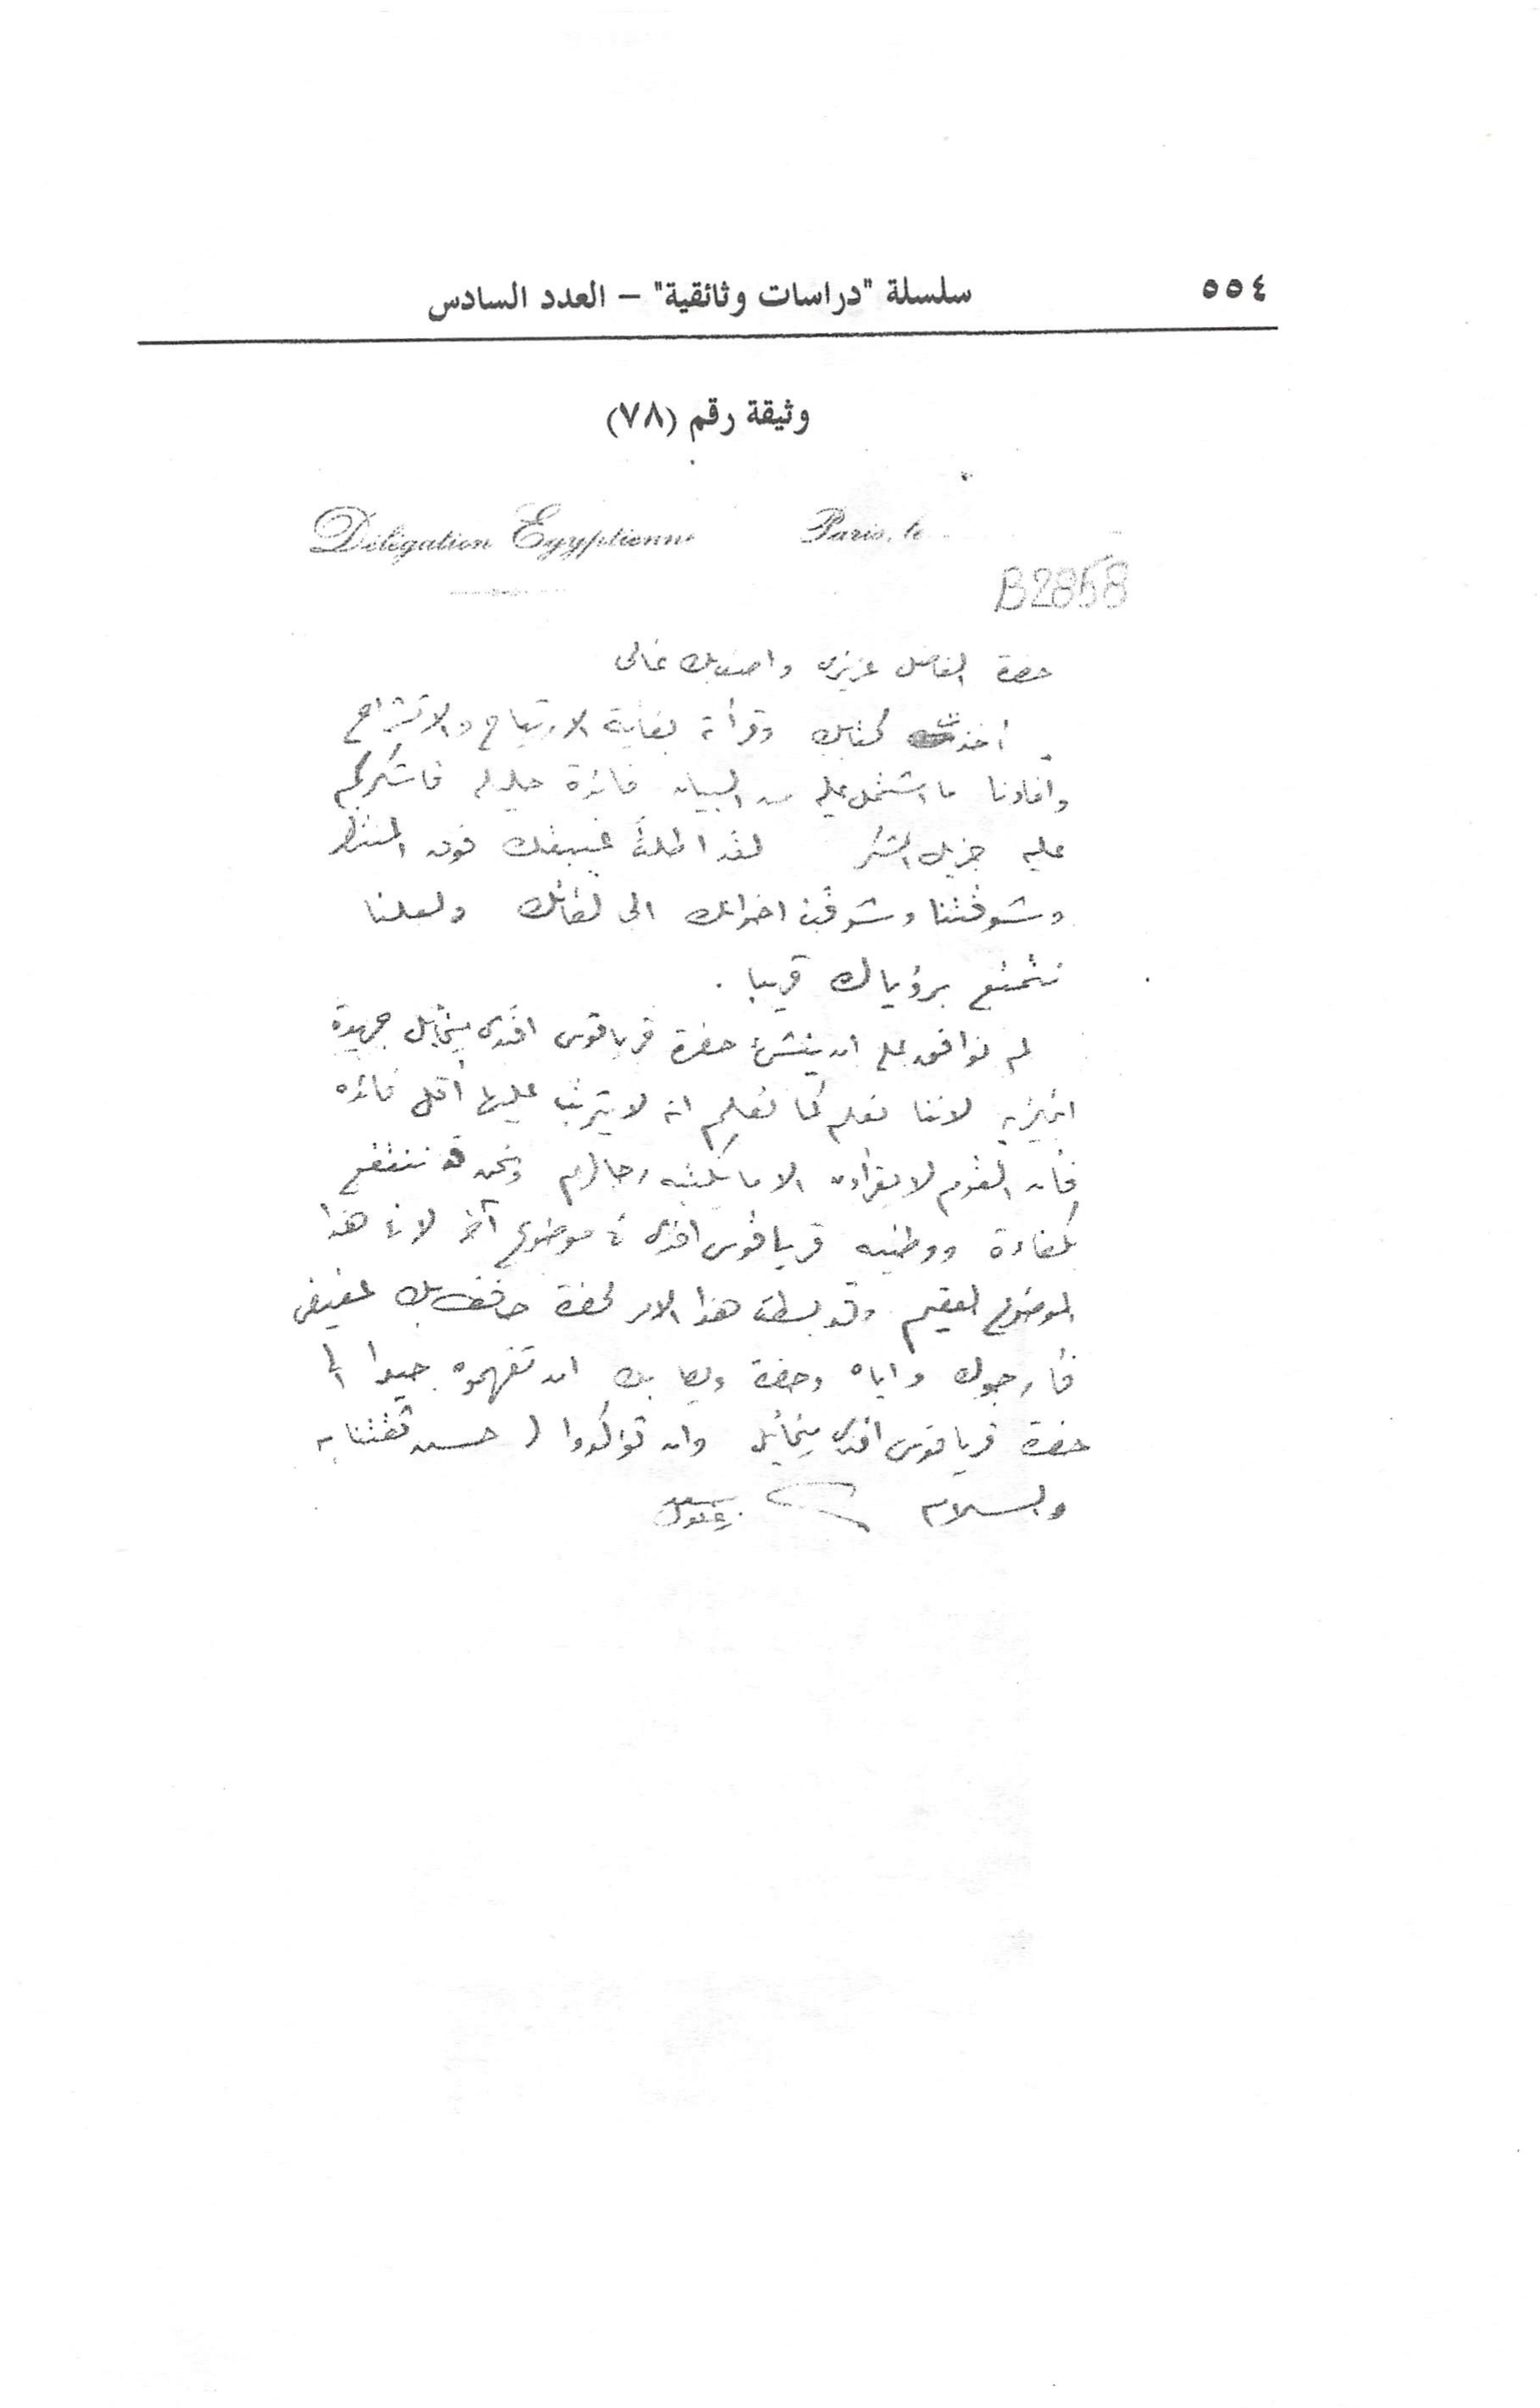 ٥٥٤
سلسلة "دراسات وثائقية" – العدد السادس
وثيقة رقم (٧٨)
Délégation Egyptienne
Paris, le
B2858
حضرة الفاضل عزيزى واصف بك غالى
أخذت كتابك وقرأته بغاية الارتياح والانشراح
وأفادنا ما اشتمل عليه من البيان فائدة جليله فاشكركم
عليه جزيل الشكر لقد اطلت غيبتك فوق المنتظر
وشوقتنا وشوقت اخوانك الى لقائك ولعلنا
نتمتع برؤياك قريبا .
لم نوافق على ان ينشئ حضرة قرياقوس افندى ميخائيل جريدة
انجليزيه لاننا نعلم كما تعلم انه لا يترتب عليها أقل فائده
فان القوم لا يقرأون الا ما يكتبه رجالهم ونحن قد ننتفع
بكفاءة ووطنيه قرياقوس افندى فى موضوع آخر لان هذا
الموضوع لعقيم وقد بسطت هذا الامر لحضرة حافظ بك عفيفى
فأرجوك واياه وحضرة ويصا بك ان تفهموه جيدا الى
حضرة قرياقوس افندى ميخائيل وان تؤكدوا له حسن ثقتنا به
والسلام
سعد زغلول